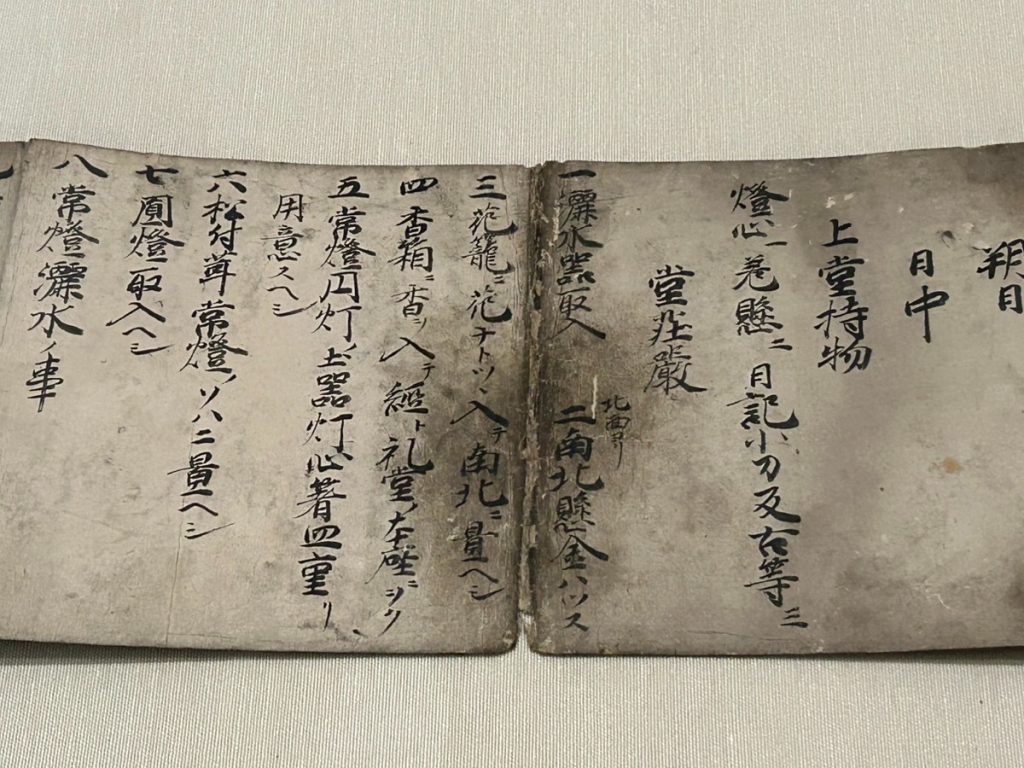 朔日
日中
上堂持物
燈心一巻懸ニ日記小刀及古等三
堂荘嚴
一灑水器取入 二南北懸金ハツス
北面ヨリ
三花籠ニ花ナトツヽ入テ南北ニ置ヘシ
四香箱ニ香ヲ入テ經ト礼堂ノ本座ニヲク
五常燈円灯ノ土器灯心著四重リ
用意スヘシ
六松付 常燈ノソハニ置ヘシ
七圓燈取入ヘシ
八常燈灑水ノ事